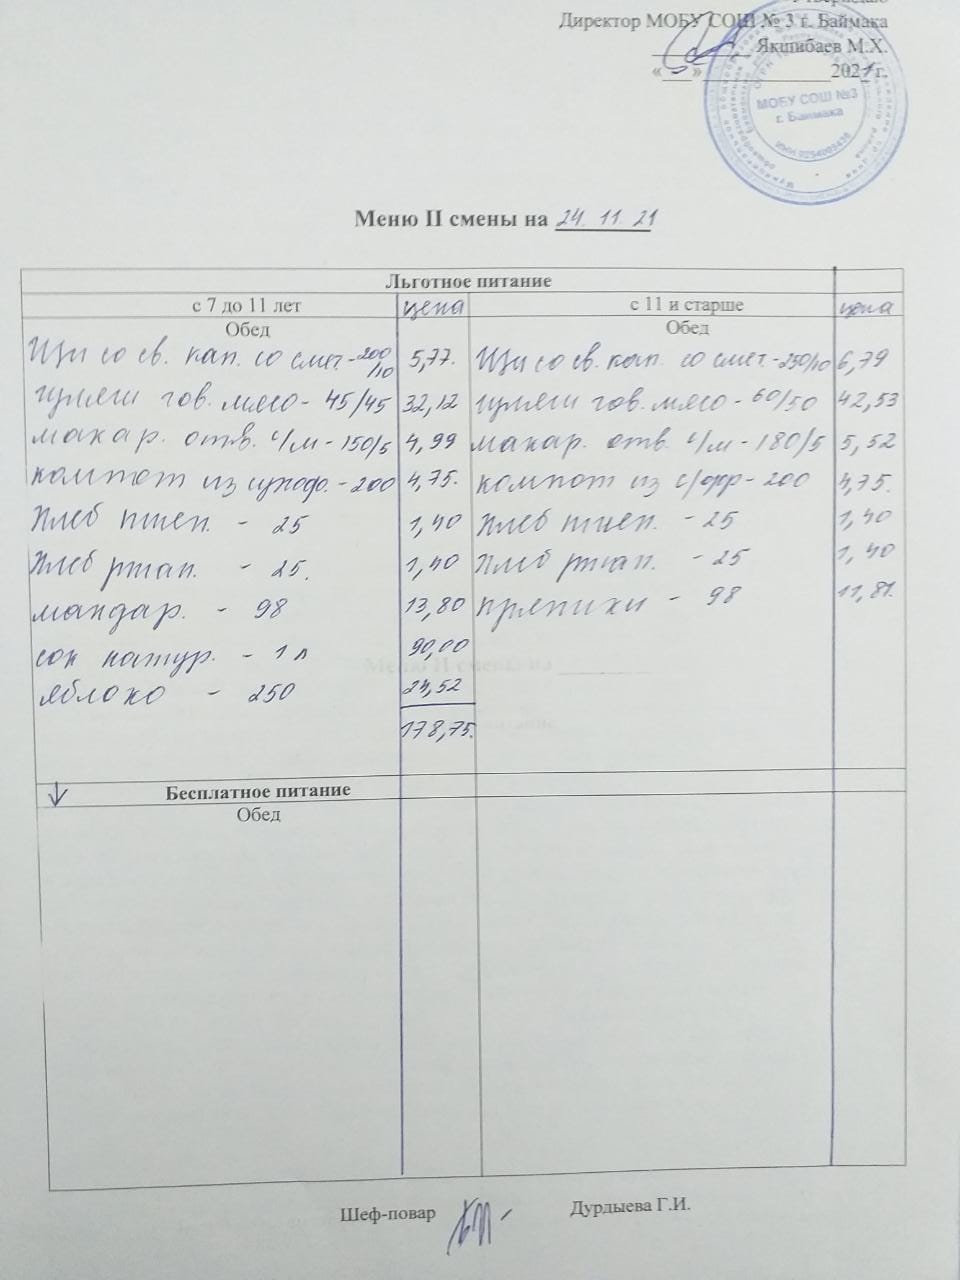 Утверждаю
Директор МОБУ СОШ № 3 г. Баймака
Якшибаев М.Х.
« » 2021 г.
МОБУ СОШ №3
г. Баймака
Меню II смены на 24. 11. 21
Льготное питание
с 7 до 11 лет цена с 11 и старше цена
Обед Обед
Щи со св. кап. со смет. - 200/10 5,77. Щи со св. кап. со смет. - 250/10 6,79
гуляш гов. мясо - 45/45 32,12 гуляш гов. мясо - 60/50 42,53
макар. отв. с/м - 150/5 4,99 макар. отв. с/м - 180/5 5,52
компот из сухоф. - 200 4,75. компот из с/фр - 200 4,75.
Хлеб пшен. - 25 1,40 Хлеб пшен. - 25 1,40
Хлеб ржан. - 25. 1,40 Хлеб ржан. - 25 1,40
мандар. - 98 13,80 пряники - 98 11,81.
сок натур. - 1 л 90,00
яблоко - 250 24,52
178,75.
Бесплатное питание
Обед
Шеф-повар Дурдыева Г.И.